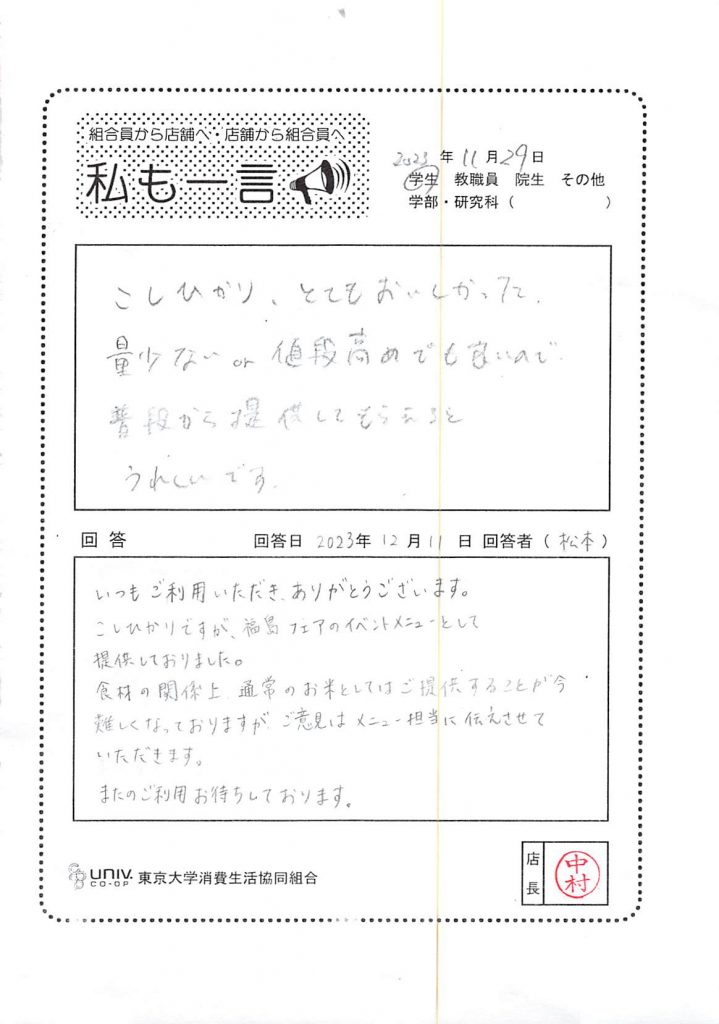 組合員から店舗へ・店舗から組合員へ
私も一言
2023年11月29日
学生 教職員 院生 その他
学部・研究科( )
こしひかり、とてもおいしかったで、
量少ない or 値段高めでも良いので
普段から提供してもらえると
うれしいです。
回答 回答日 2023年12月11日 回答者(松本)
いつもご利用いただき、ありがとうございます。
こしひかりですが、福島フェアのイベントメニューとして
提供しておりました。
食材の関係上、通常のお米としてはご提供することが今
難しくなっておりますが、ご意見はメニュー担当に伝えさせて
いただきます。
またのご利用お待ちしております。
UNIV. CO-OP 東京大学消費生活協同組合
店長
中村